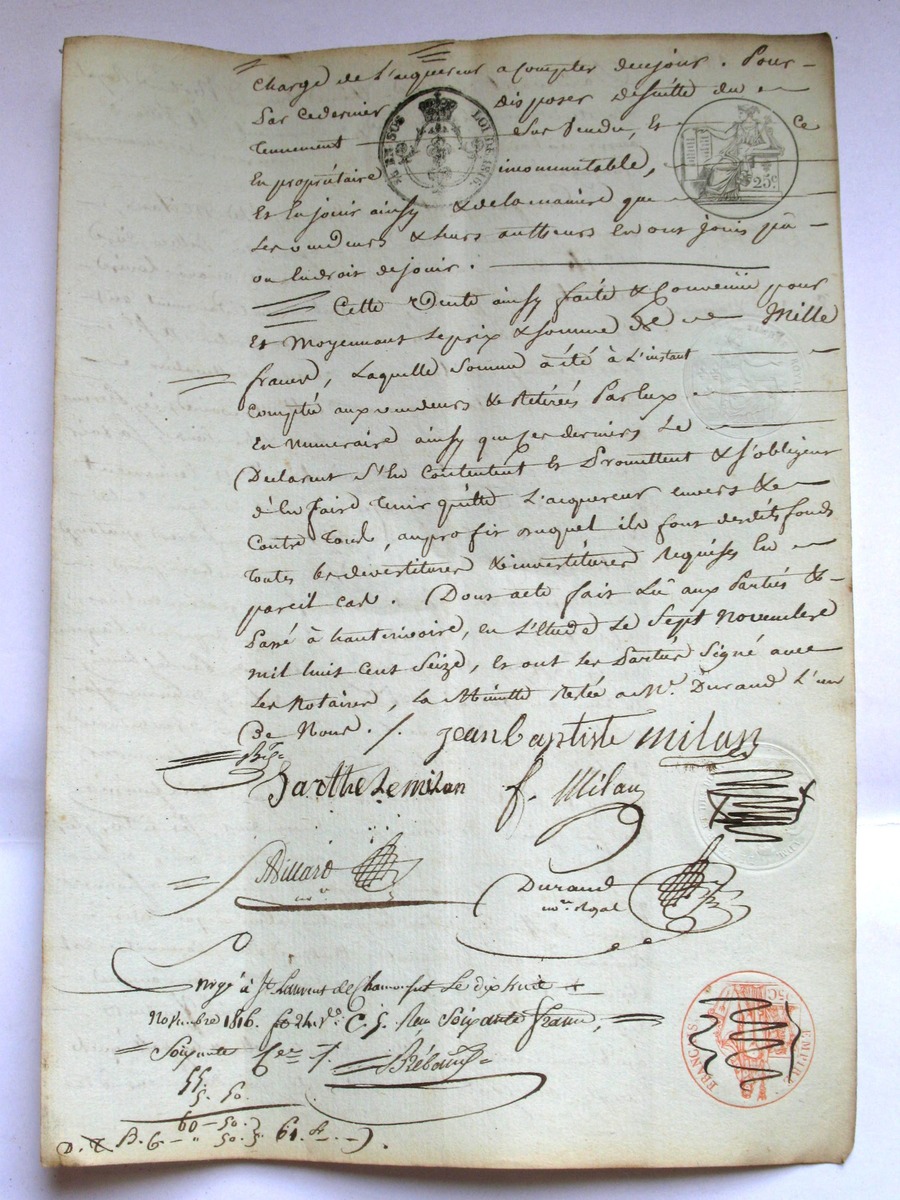 charge de l'acquereur a compter de ce jour. Pour
Par ce dernier disposer desuitte du
tennement sus vendu, Et ce
En propriétaire incommutable,
Et En jouir ainsy & de la maniere que
Les vendeurs & leurs autteurs En ont jouis pû
ou En droit de jouir.
Cette Vente ainsy faite & Convenue pour
Et Moyennant Le prix & somme de Mille
francs, Laquelle Somme a été à L'instant
Compté aux vendeurs & Retirés Par Eux
En Numeraire ainsy que ces derniers Le
Declarent S'En Contentent Et Promettent & s'obligent
d'En faire tenir quitte L'acquereur envers &
Contre Tous, au profit duquel ils font desdits fonds
Toutes les devestitures & investitures Requises En
pareil cas. Dont acte fait Lû aux Parties &
Passé à hauterivoire, en L'Etude Le Sept Novembre
mil huit Cent Seize, Et ont Les Parties Signé avec
Les Notaires, La Minutte Restée a Me. Durand L'un
De Nous.
jean baptiste milan
Barthelemilan f. Milan
Durand
nore. Royal
Enrgé à St Laurent de Chamousset Le dix huit
Novembre 1816. C. 5. Reçu Soixante francs,
Soixante
55.
5. 50.
60-50.
D. & B. 6- " 50. 61.
LOI DE 1816.
25c
EMPIRE FRANCS